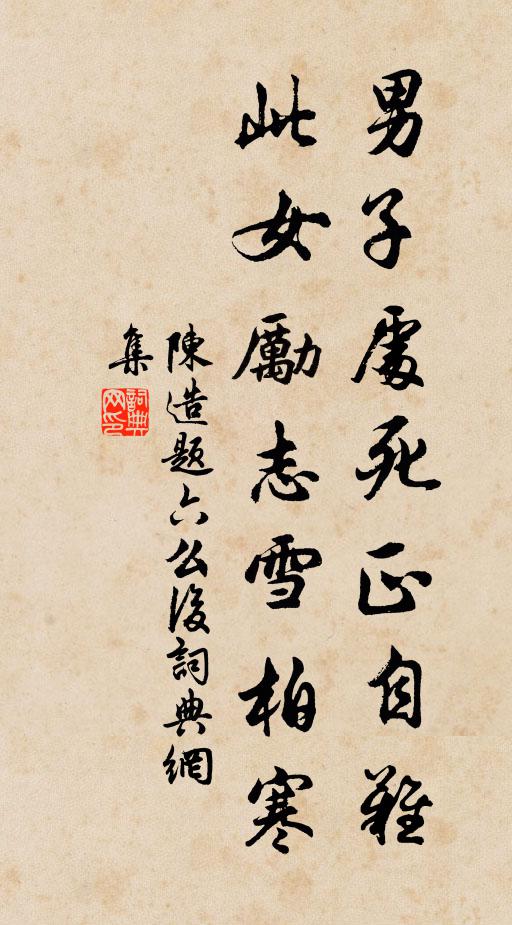 男子處死正自難
此女勵志雪柏寒
陳造題六么後詞典網
集
詞典
网印